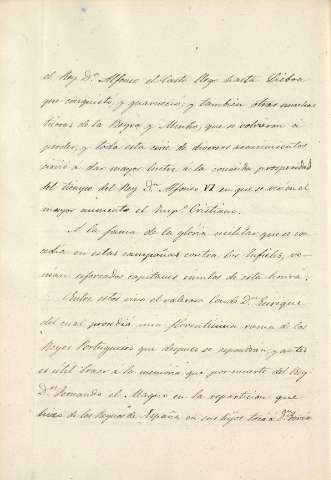 el Rey D.n Alfonso el Casto llego hasta Lisboa
que conquistó, y guarneció; y tambien otras muchas
tierras de la Beyra, y Miño, que se volvieron á
perder, y toda esta serie de diversos acaecimientos
sirvió á dar mayor lustre á la conocida prosperidad
del tiempo del Rey D.n Alfonso VI en que se vió en el
mayor aumento el Imp.o Cristiano.
A la fama de la gloria militar que se con
cedia en estas campañas contra los Infieles, ve-
nian esforzados capitanes emulos de esta honra.
Entre estos vino el valeroso Conde D.n Enrique
del cual procedia una florentisima rama de los
Reyes Portugueses que despues se espondran, y antes
es util traer á la memoria que por muerte del Rey
D.n Fernando el Magno en la reparticion que
hizo de los Reynos de España en sus hijos tocó á D.n Garcia